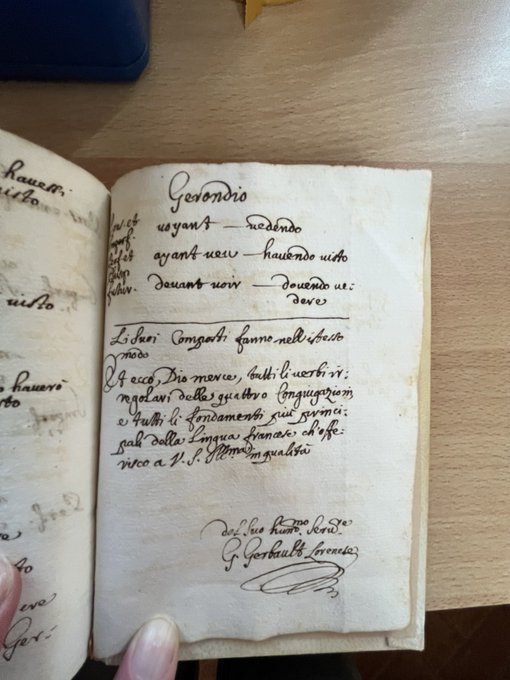 havessi
visto
visto
haverò
Gerondio
voyant — vedendo
ayant veu — havendo visto
devant voir — dovendo ve:
dere
Li suoi Composti fanno nell'istesso
modo
Et ecco, Dio mercè, tutti li verbi ir:
regolari delle quattro Coniugazioni
e tutti li fondamenti più princi:
pali della Lingua francese ch'offe:
risco a V. S. Ill.ma in qualità
del suo hum.mo Serv.re
G. Gerbault Lorenese